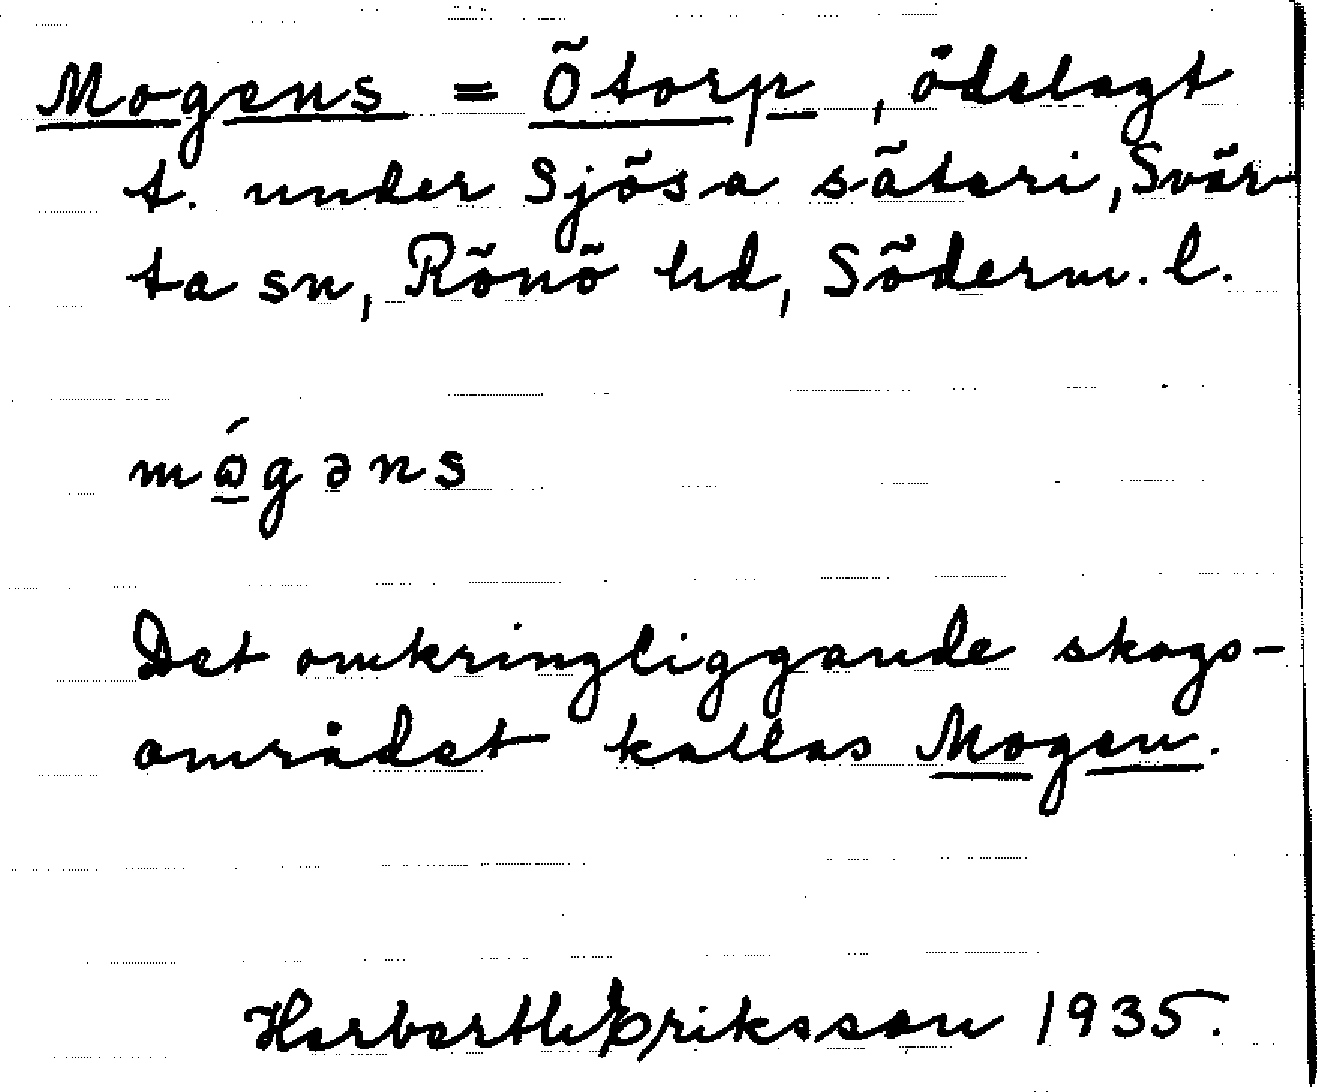 Mogens = Ötorp, ödelagt
t. under Sjösa säteri, Svär-
ta sn, Rönö hd, Söderm. l.
mɷ́gəns
Det omkringliggande skogs-
området kallas Mogen.
Herberth Eriksson 1935.